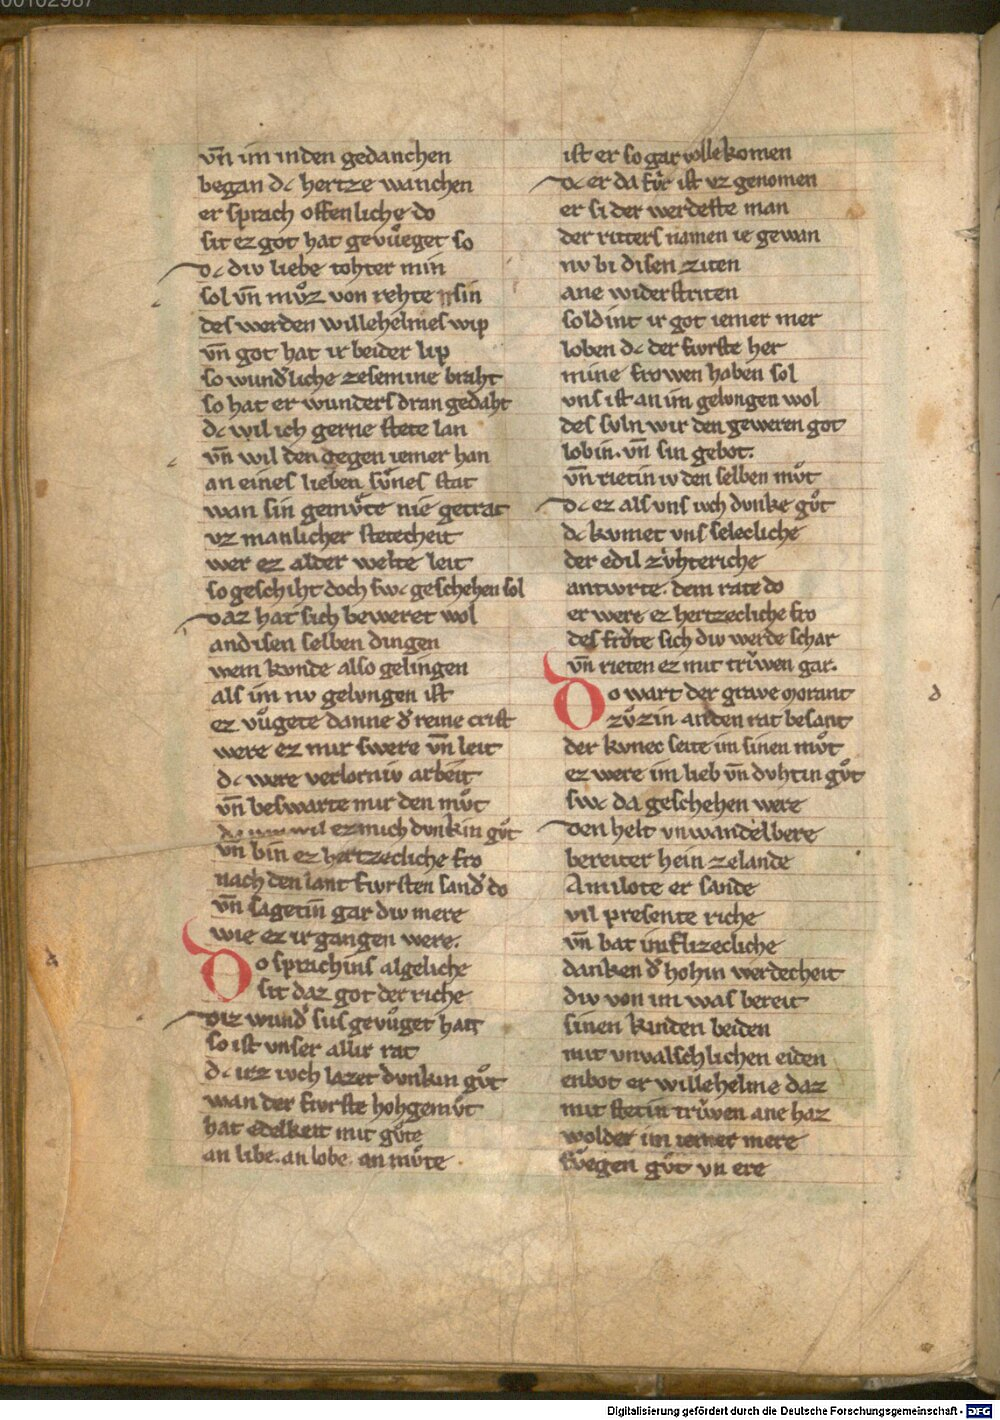 00102987
vn̄ im in den gedanchen
began dc hertze wanchen
er sprach offenliche do
sit ez got hat gevu̍eget so
dc div liebe tohter min
sol vn̄ mvͦz von rehte sin
des werden willehelmes wip
vn̄ got hat ir beider lip
so wund̕liche zesemine braht
so hat er wunders dran gedaht
dc wil ich gerne stete lan
vn̄ wil den degen iemer han
an eines lieben svͦnes stat
wan sin gemvͤte nie getrat
vz manlicher stetecheit
wer ez alder welte leit
so geschiht doch swc geschehen sol
daz hat sich beweret wol
an disen selben dingen
wem kvnde also gelingen
als im nv gelvngen ist
ez vuͦgete danne d̕ reine crist
were ez mir swere vn̄ leit
dc were verlorniv arbeit
vn̄ beswarte mir den mvͦt
wil ez mich dvnkin gvͦt
vn̄ bin ez hertzecliche fro
nach den lant fvrsten sand̕ do
vn̄ sagetin gar div mere
wie ez irgangen were.
Do sprachins algeliche
sit daz got der riche
diz wund̕ sus gevuͦget hatt
so ist vnser allir rat
dc irz ivch lazet dvnkin gvͦt
wan der fvrste hohgemvͦt
hat edelkeit mit gvͤte
an libe. an lobe. an mvͤte
ist er so gar vollekomen
dc er da fvͥr ist vz genomen
er si der werdeste man
der ritters namen ie gewan
nv bi disen ziten
ane widerstriten
sold int ir got iemer mer
loben dc der fvrste her
mine frowen haben sol
vns ist an im gelvngen wol
des svln wir den geweren got
lobin. vn̄ sin gebot.
vn̄ rietin iv den selben mvͦt
dc ez als vns ivch dvnke gvͦt
dc kvmet vns selecliche
der edil zvͥhteriche
antwrte. dem rate do
er were ez hertzecliche fro
des frovte sich div werde schar
vn̄ rieten ez mit trv̍wen gar.
Do wart der grave morant
zvͦzin an den rat besant
der kvnec seite im sinen mvͦt
ez were im lieb vn̄ dvhtin gvͦt
swc da geschehen were
den helt vnwandelbere
bereiter hein zelande
Amilote er sande
vil presente riche
vn̄ bat im flizecliche
danken d̕ hohin werdecheit
div von im was bereit
sinen kinden beiden
mit vnvalschlichen eiden
enbot er willehelme daz
mit stetin trv̍wen ane haz
wolder im iemer mere
fvͤgen gvͦt vn ere
d
Digitalisierung gefördert durch die Deutsche Forschungsgemeinschaft - DFG